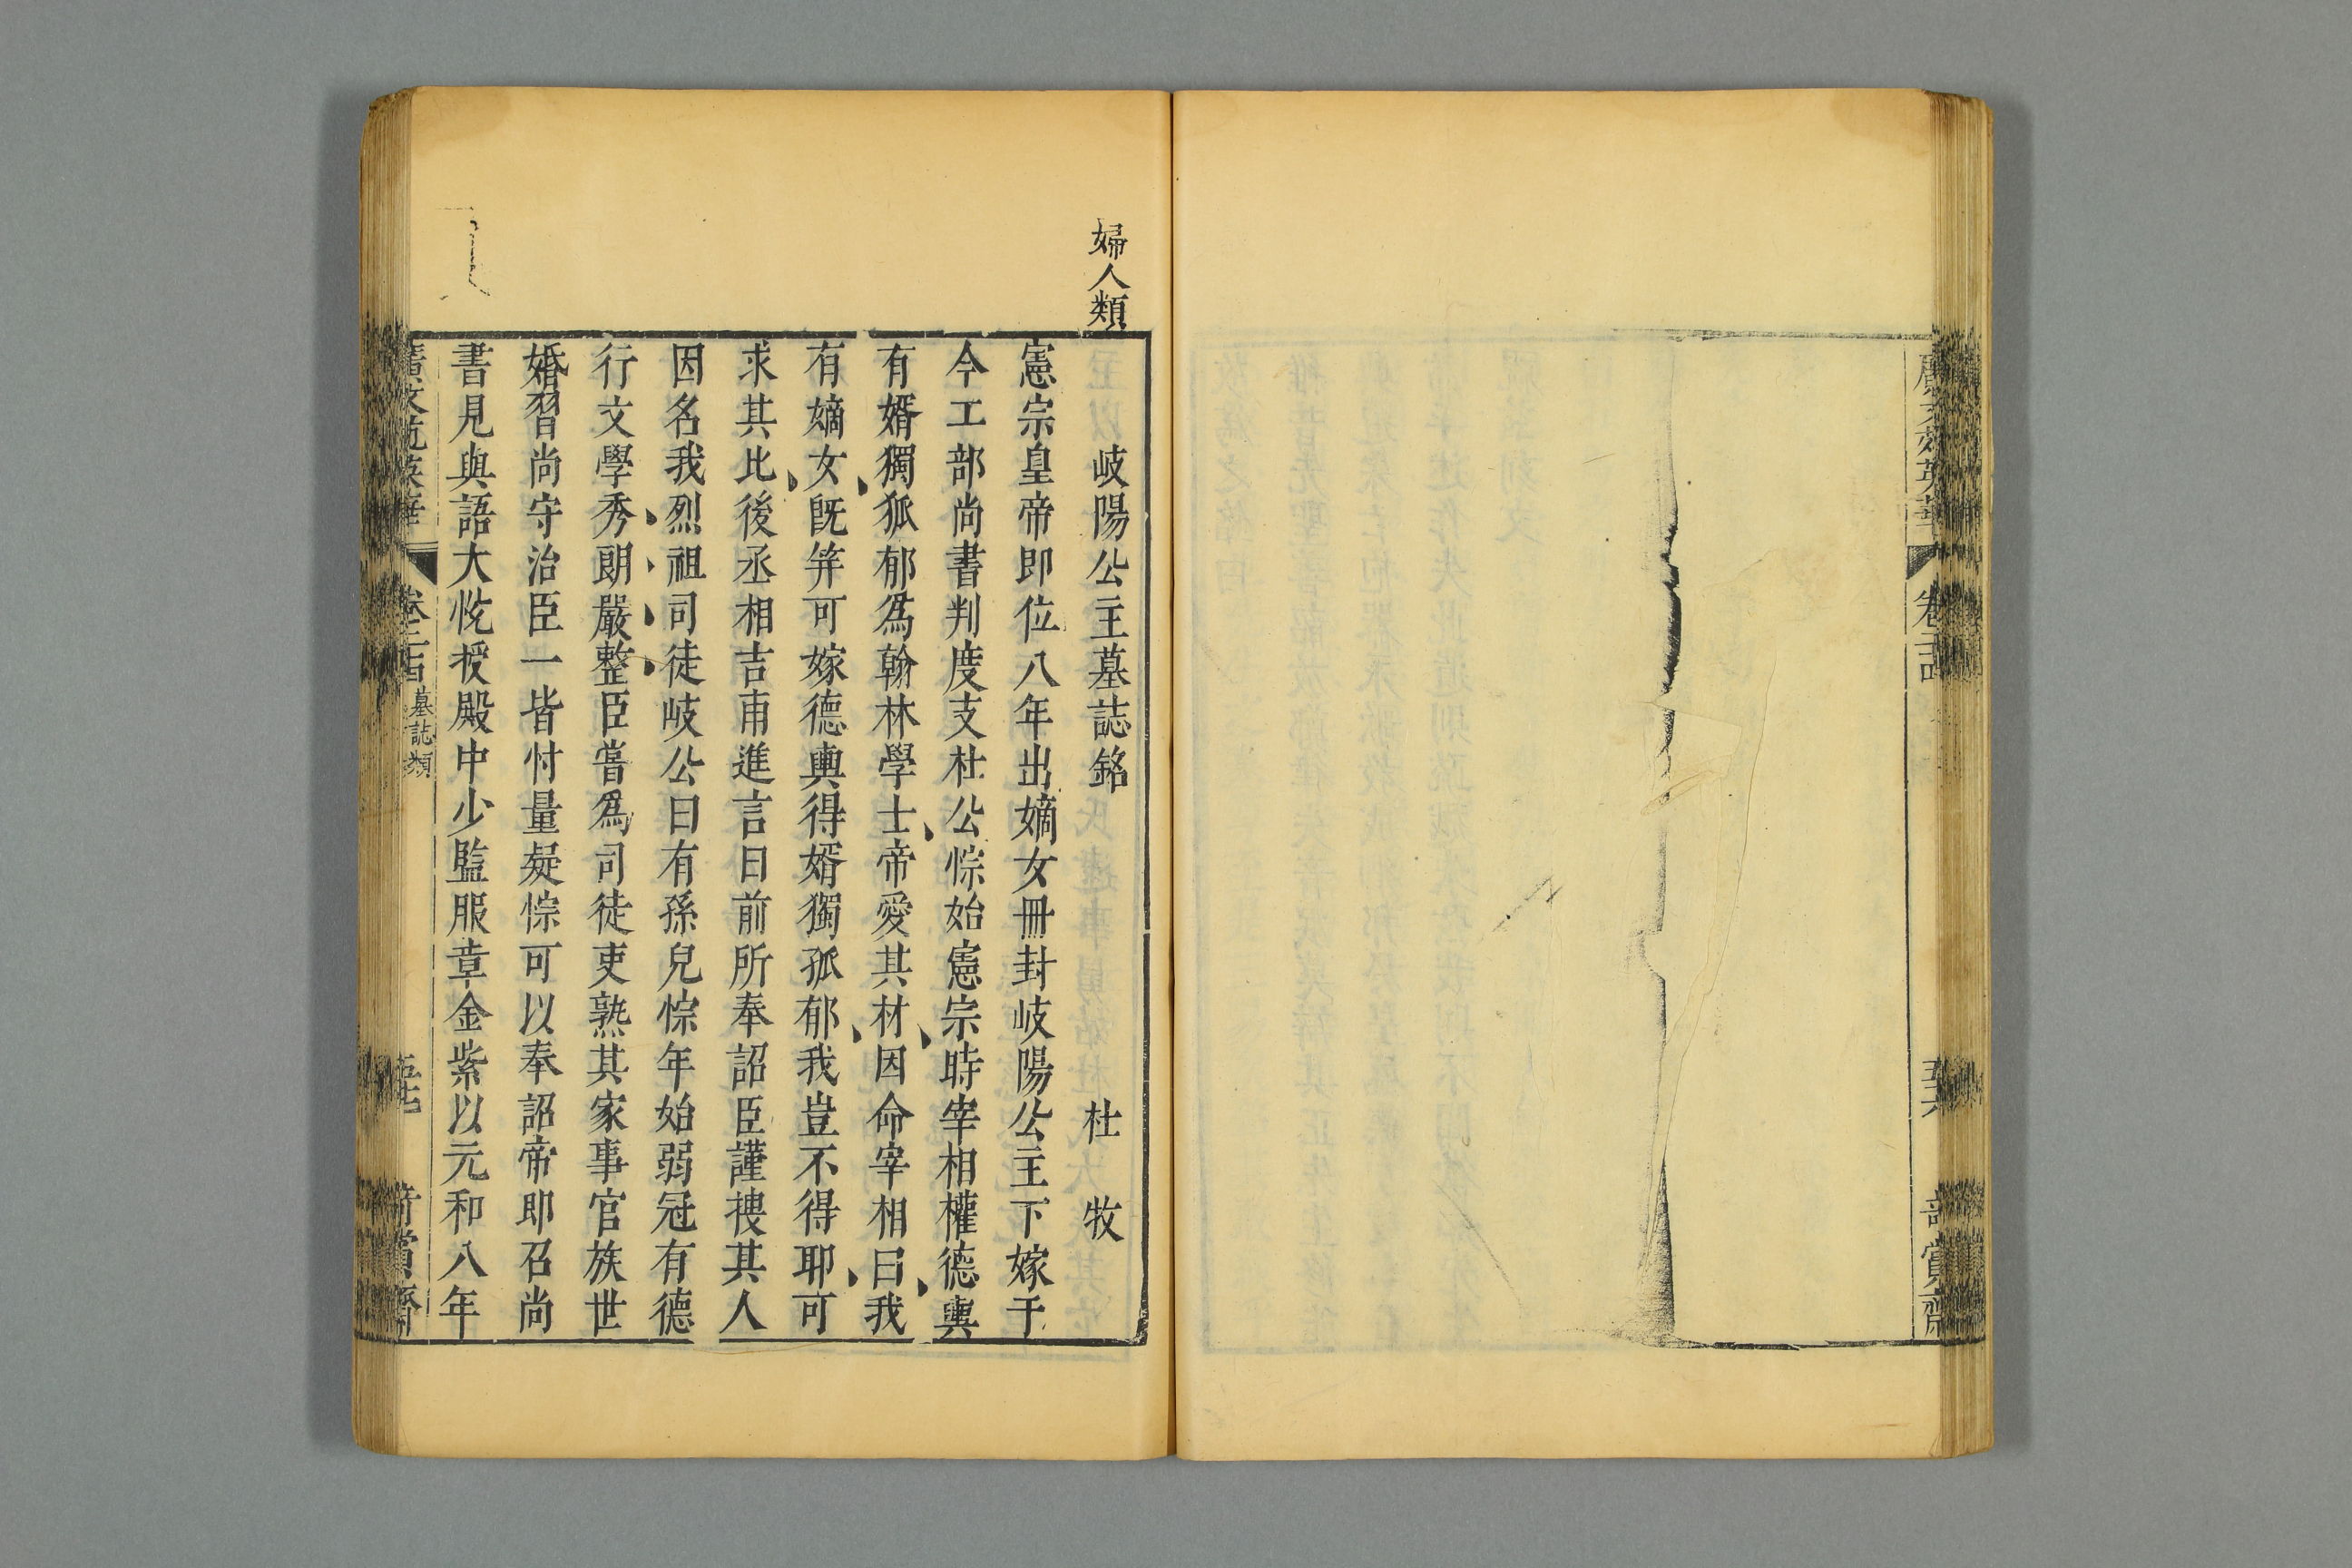 婦人類
岐陽公主墓誌銘 杜牧
憲宗皇帝即位八年出嫡女冊封岐陽公主下嫁于
今工部尚書判度支杜公悰始憲宗時宰相權德輿
有婿獨狐郁爲翰林學士帝愛其材因命宰相曰我
有嫡女旣笄可嫁德輿得婿獨孤郁我豈不得耶可
求其比後丞相吉甫進言曰前所奉詔臣謹搜其人
因名我烈祖司徒岐公曰有孫兒悰年始弱冠有德
行文學秀朗嚴整臣嘗爲司徒吏熟其家事官族世
婚習尚守治臣一皆忖量疑悰可以奉詔帝即召尚
書見與語大悅授殿中少監服章金紫以元和八年
墓誌類